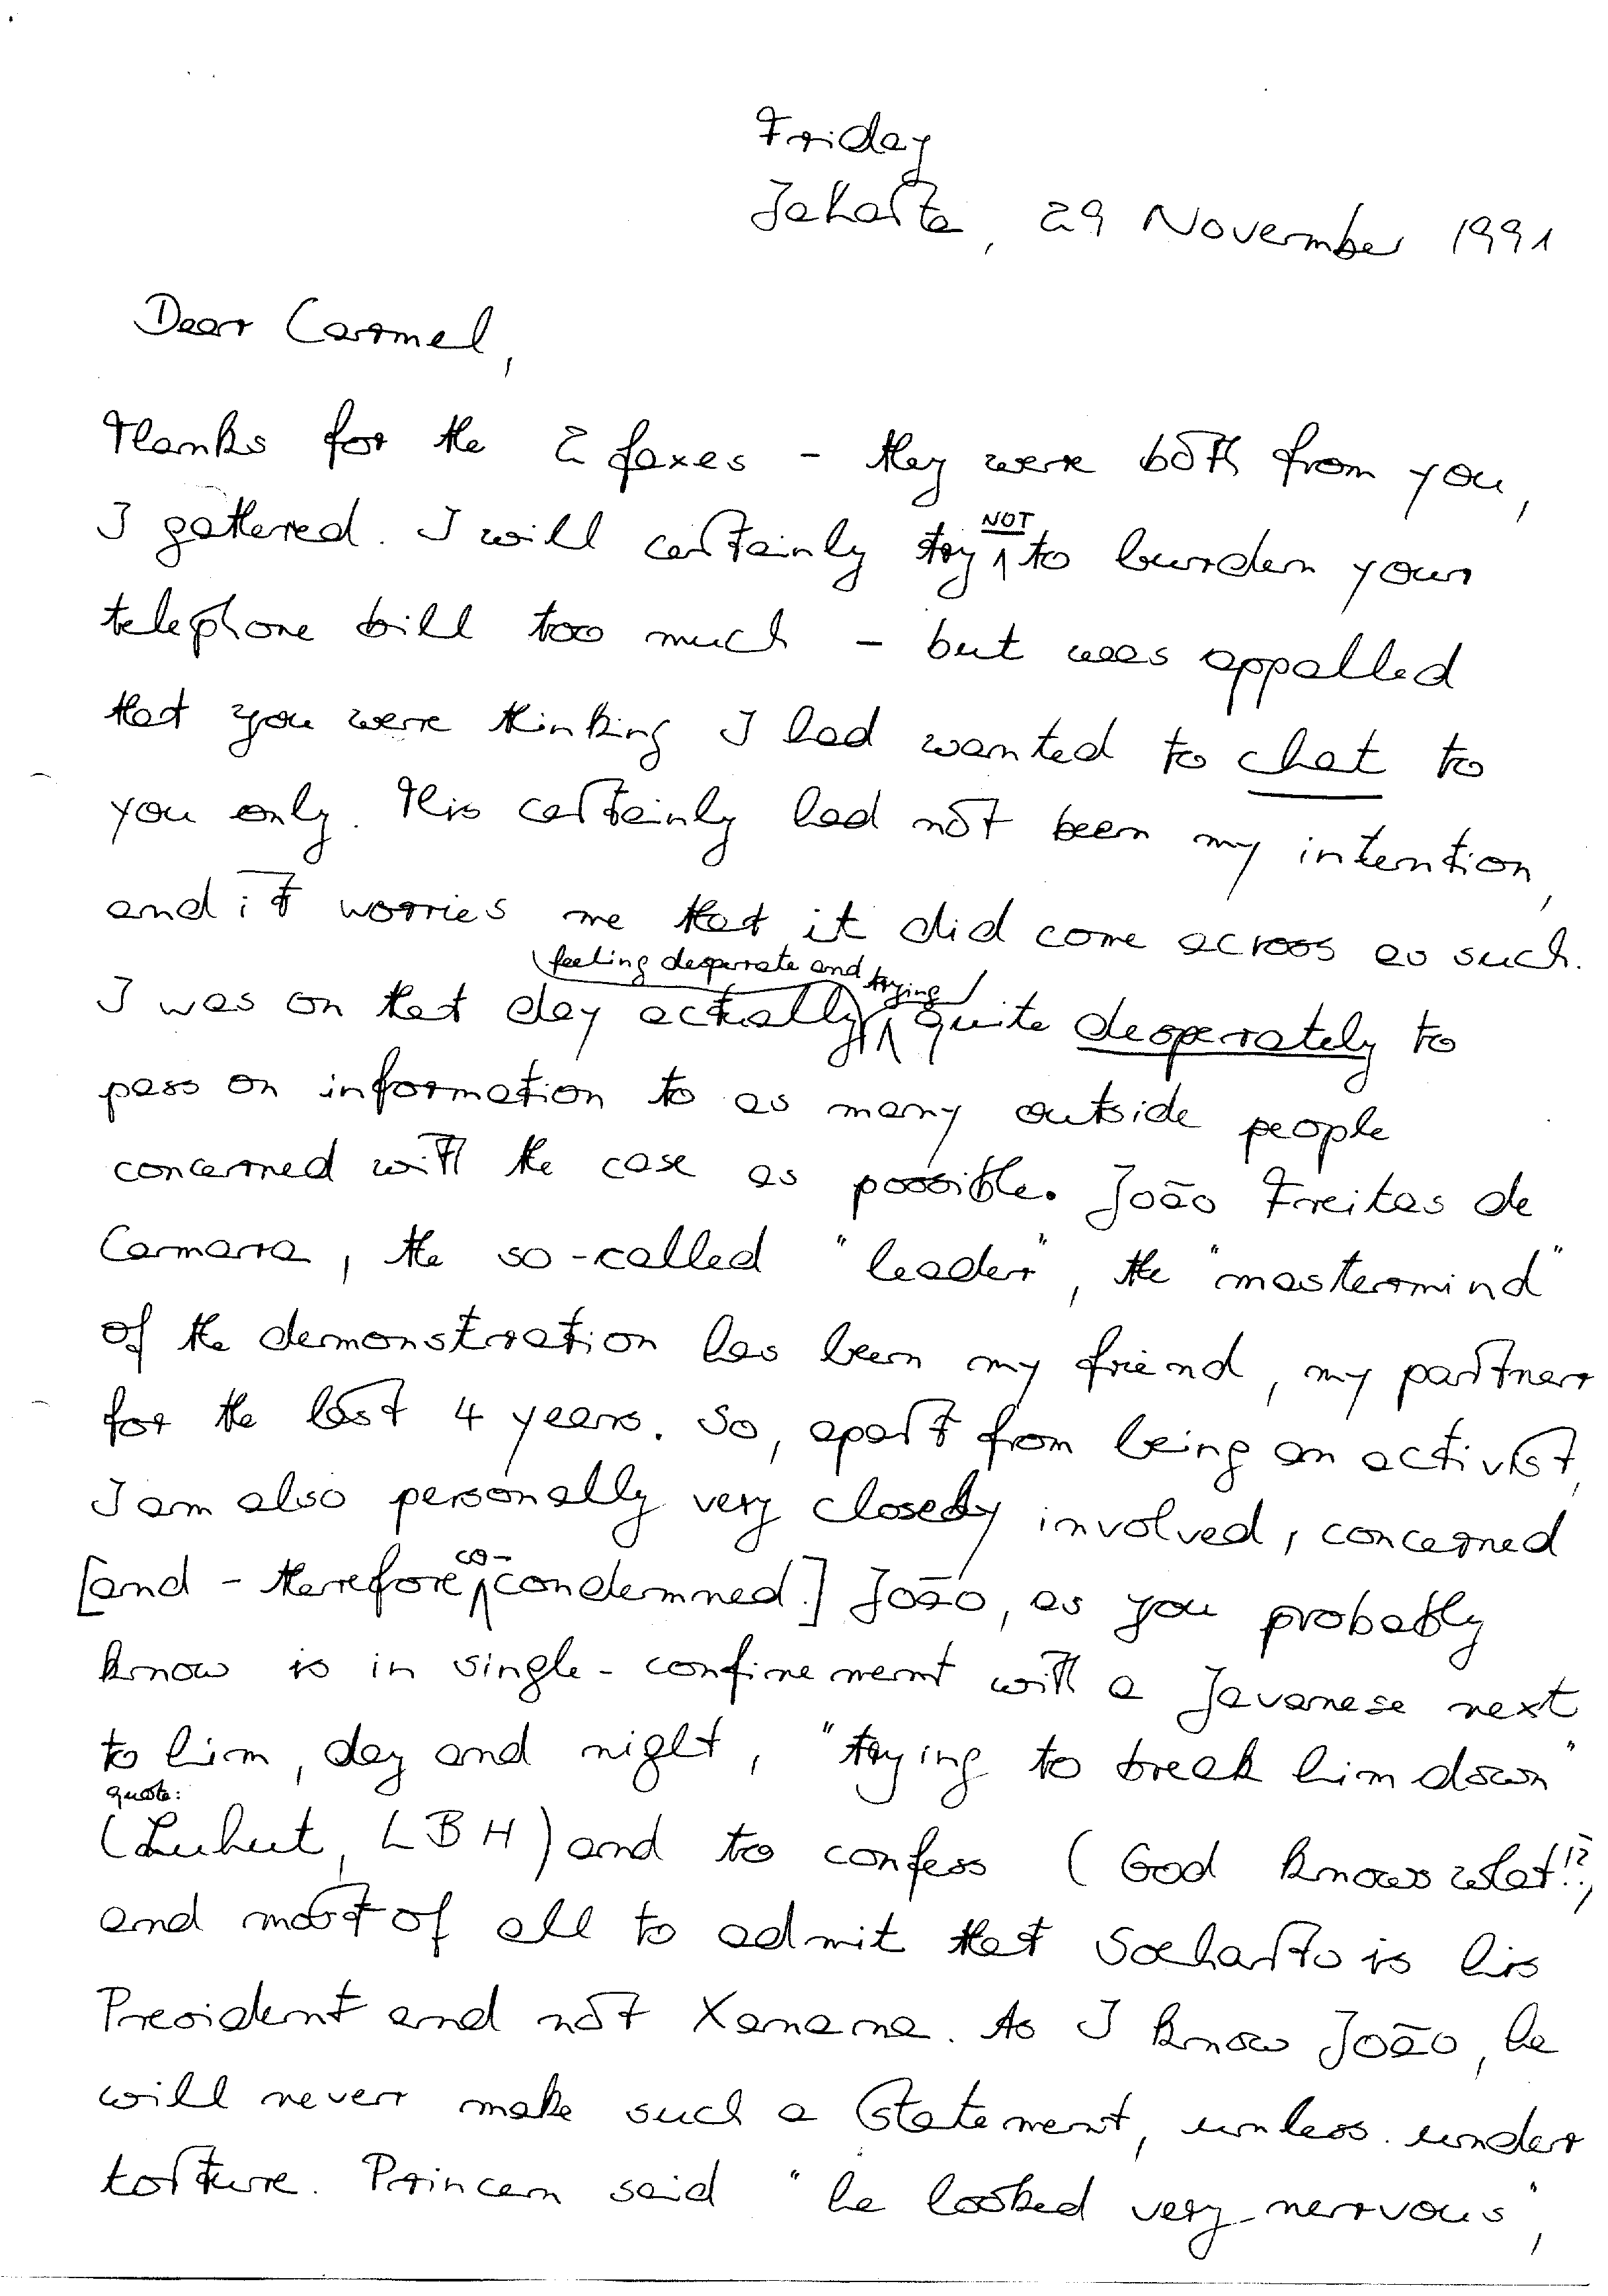 Friday
Jakarta, 29 November 1991
Dear Carmel,
Thanks for the 2 faxes - they were both from you,
I gathered. I will certainly try NOT to burden your
telephone bill too much - but was appalled
that you were thinking I had wanted to chat to
you only. This certainly had not been my intention,
and it worries me that it did come across as such.
I was on that day actually feeling desperate and trying quite desperately to
pass on information to as many outside people
concerned with the case as possible. João Freitas de
Camara, the so-called "leader", the "mastermind"
of the demonstration has been my friend, my partner
for the last 4 years. So, apart from being an activist,
I am also personally very closely involved, concerned
[and - therefore co-condemned.] João, as you probably
know is in single-confinement with a Javanese next
to him, day and night, "trying to break him down"
(quote: Luhut, LBH) and to confess (God knows what!?)
and most of all to admit that Soeharto is his
President and not Xanana. As I know João, he
will never make such a statement, unless under
torture. Princen said "he looked very nervous",